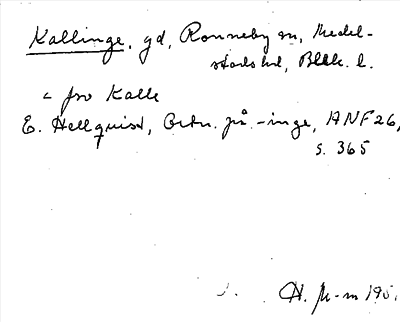 Kallinge, gd, Ronneby sn, Medel-
stads hd, Blek. l.
< fsv Kalle
E. Hellquist, Ortn. på -inge, ANF 26,
s. 365
H. 195